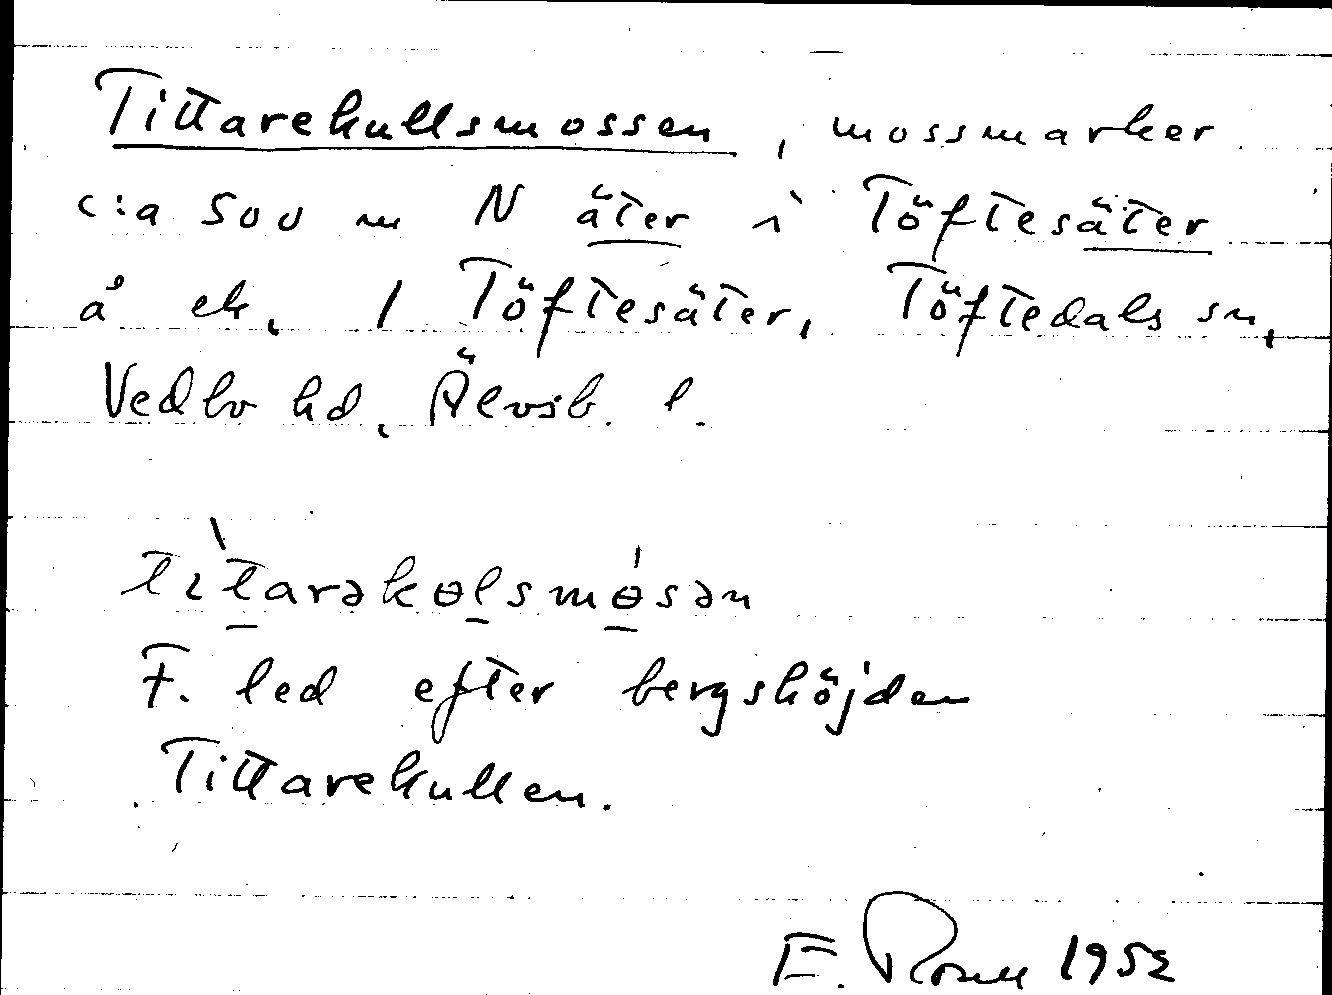 Tittarekullsmossen, mossmarker
c:a 500 m N äter i Töftesäter
å ek. 1 Töftesäter, Töftedals sn,
Vedbo hd, Älvsb. l.
titarəkɵlsmɵsən
F. led efter bergshöjden
Tittarekullen.
E. 1952